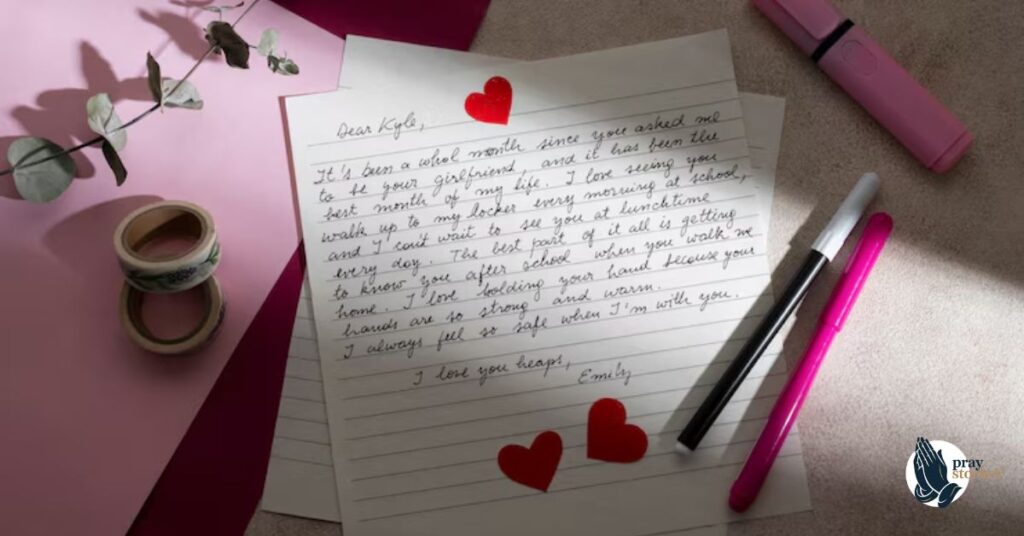 Dear Kyle,
It's been a whol month since you asked me
to be your girlfriend, and it has been the
best month of my life. I love seeing you
walk up to my locker every morning at school,
and I can't wait to see you at lunchtime
every day. The best part of it all is getting
to know you after school when you walk me
home. I love holding your hand because your
hands are so strong and warm.
I always feel so safe when I'm with you.
I love you heaps,
Emily
pray